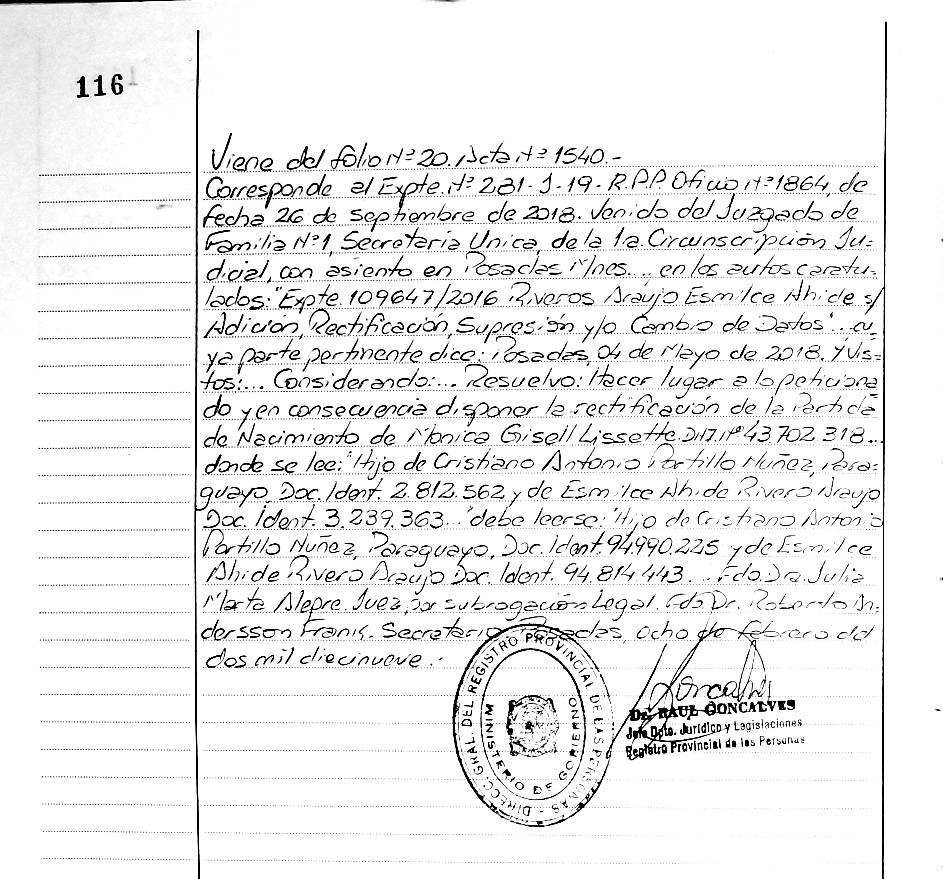 116
Viene del folio Nº 20. Acta Nº 1540.-
Corresponde al Expte. Nº 281-J-19-R.P.P. Oficio Nº 1864, de
fecha 26 de septiembre de 2018. Venido del Juzgado de
Familia Nº1, Secretaría Unica, de la 1a. Circunscripción Ju-
dicial, con asiento en Posadas Mnes... en los autos caratu-
lados: "Expte. 109647/2016 Riveros Araujo Esmilce Ahide s/
Adición, Rectificación, Supresión y/o Cambio de Datos"... cu-
ya parte pertinente dice: Posadas, 04 de Mayo de 2018. Y Vis-
tos:... Considerando:... Resuelvo: Hacer lugar a lo peticiona
do y en consecuencia disponer la rectificación de la Partida
de Nacimiento de Monica Gisell Lissette D.N.I. Nº 43.702.318...
donde se lee: "Hijo de Cristiano Antonio Portillo Nuñez, Para-
guayo, Doc. Ident. 2.812.562 y de Esmilce Ahide Rivero Araujo
Doc. Ident. 3.239.363..." debe leerse: "Hijo de Cristiano Antonio
Portillo Nuñez, Paraguayo, Doc. Ident. 94.990.225 y de Esmilce
Ahide Rivero Araujo Doc. Ident. 94.814.443... Fdo. Dra. Julia
Marta Alegre. Juez, por subrogación Legal. Fdo Dr. Roberto An-
dersson Frank. Secretario. Posadas, ocho de febrero del
dos mil diecinueve.-
DIRECC. GRAL. DEL REGISTRO PROVINCIAL DE LAS PERSONAS
MINISTERIO DE GOBIERNO
Goncalves
Dr. RAUL GONCALVES
Jefe Dpto. Jurídico y Legislaciones
Registro Provincial de las Personas